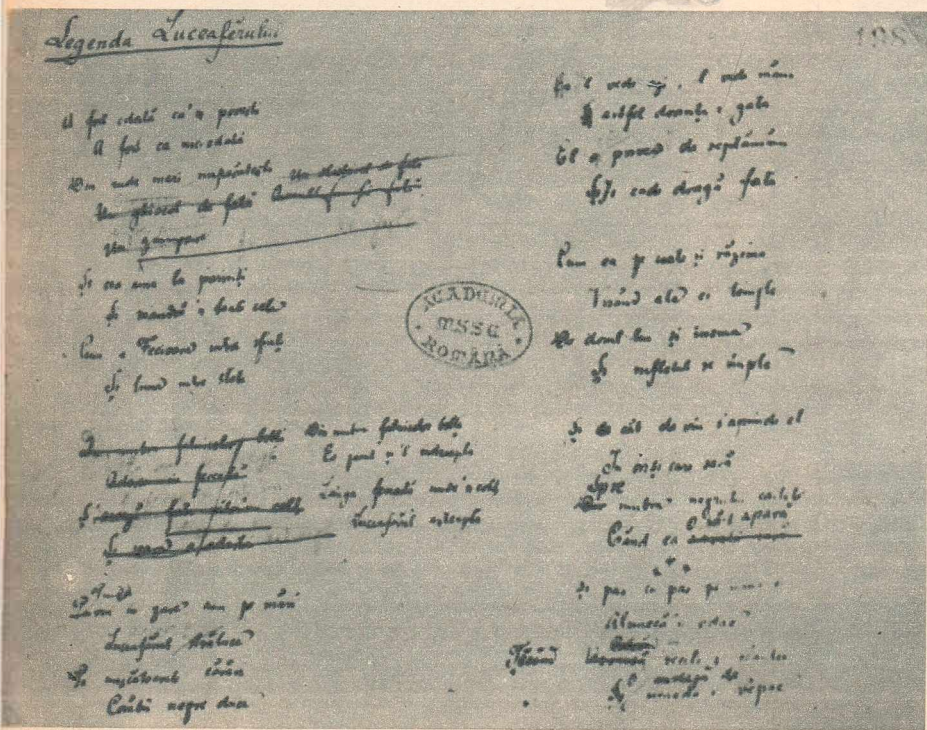 Legenda Luceafĕrului
198
A fost odată ca 'n povești
A fost ca nici odată
Din rude mari împărătești
Un ghiocel de fată
Un
Și era una la părinți
Și mândră 'n toate cele
Cum e Fecioara între sfinți
Și luna între stele
Din umbra falnicelor bolți
Ea pasul și 'l îndreaptă
Lânga fereastă unde 'n colț
Luceafărul așteaptă
Privea în zare cum pe mări
Luceafărul străluce
Pe mișcătoarele cărări
Corăbii negre duce
ACADEMIA
MSSE
ROMÂNĂ
Îl vede azi, îl vede mâni
Astfel dorința-i gata
El o privea de septămâni
Îi cade dragă fata
Cum ea pe coate și răzima
Visând ale ei tâmple
De dorul lui și inima
Și sufletul se împle
Și cât de viu s'aprinde el
În orișicare sară
Spre
umbra negrului castel
Când ea o să-i apară
* * *
Și pas cu pas pe urma ei
Alunecă 'n odae
Țesând recile-i scântei
O mreajă de
văpae